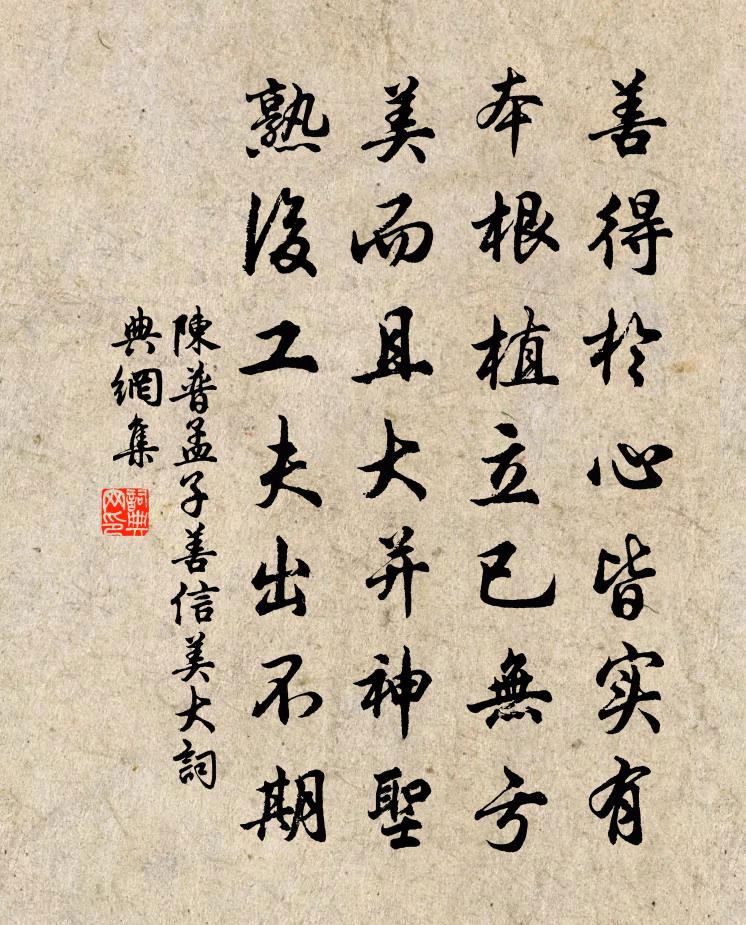 善得於心皆实有
本根植立已無亏
美而且大并神聖
熟後工夫出不期
陳普孟子善信美大詞
典網集
詞典
网印